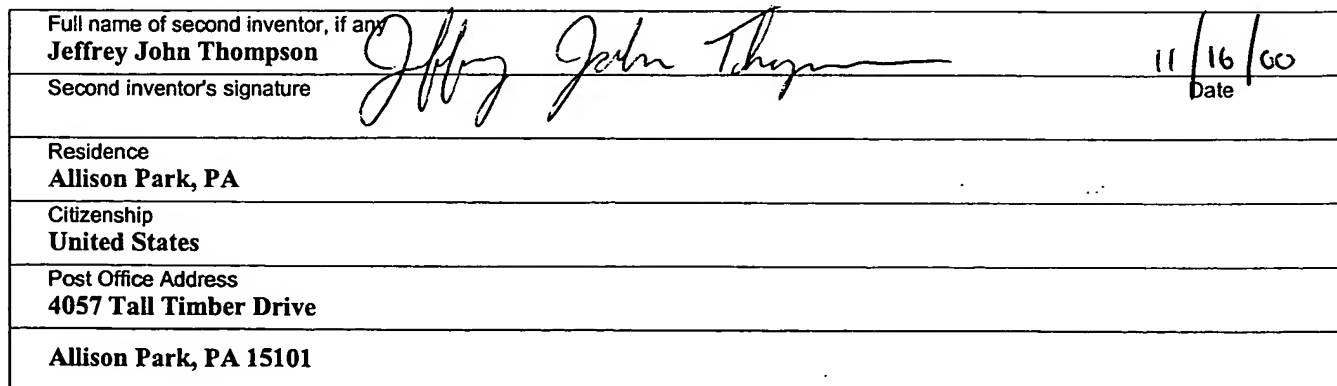 Full name of second inventor, if any
Jeffrey John Thompson
Jeffrey John Thompson 11/16/00
Second inventor's signature Date
Residence
Allison Park, PA
Citizenship
United States
Post Office Address
4057 Tall Timber Drive
Allison Park, PA 15101